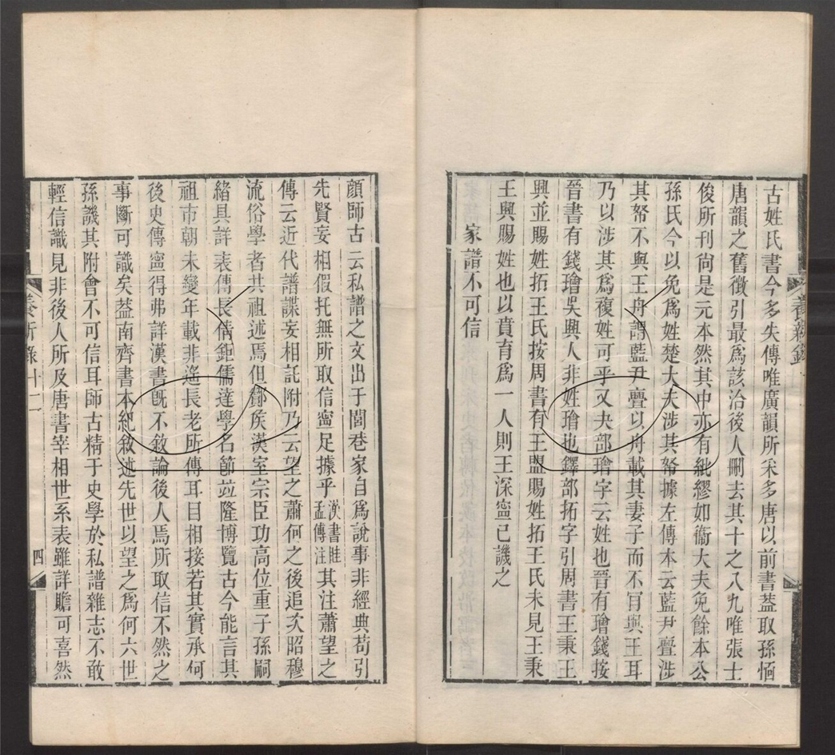 古姓氏書今多失傳唯廣韻所采多唐以前書葢取孫愐
唐韻之舊徵引最爲該洽後人刪去其十之八九唯張士
俊所刊尙是元本然其中亦有紕繆如衞大夫免餘本公
孫氏今以免爲姓楚大夫涉其帑據左傳本云藍尹亹涉
其帑不與王舟謂藍尹亹以舟載其妻子而不肯與王耳
乃以涉其爲複姓可乎又夬部璯字云姓也晉有璯錢按
晉書有錢璯吳興人非姓璯也鐸部拓字引周書王秉王
興並賜姓拓王氏按周書有王盟賜姓拓王氏未見王秉
王興賜姓也以賁育爲一人則王深寧已譏之
家譜不可信
顏師古云私譜之文出于閭巷家自爲說事非經典苟引
先賢妄相假托無所取信寧足據乎漢書眭孟傳注其注蕭望之
傳云近代譜諜妄相託附乃云望之蕭何之後追次昭穆
流俗學者共祖述焉但酇矦漢室宗臣功高位重子孫嗣
緖具詳表傳長倩鉅儒達學名節竝隆博覽古今能言其
祖市朝未變年載非遙長老所傳耳目相接若其實承何
後史傳寧得弗詳漢書旣不敘論後人焉所取信不然之
事斷可識矣葢南齊書本紀敘述先世以望之爲何六世
孫譏其附會不可信耳師古精于史學於私譜雜志不敢
輕信識見非後人所及唐書宰相世系表雖詳贍可喜然
養新錄十二
四
養新錄